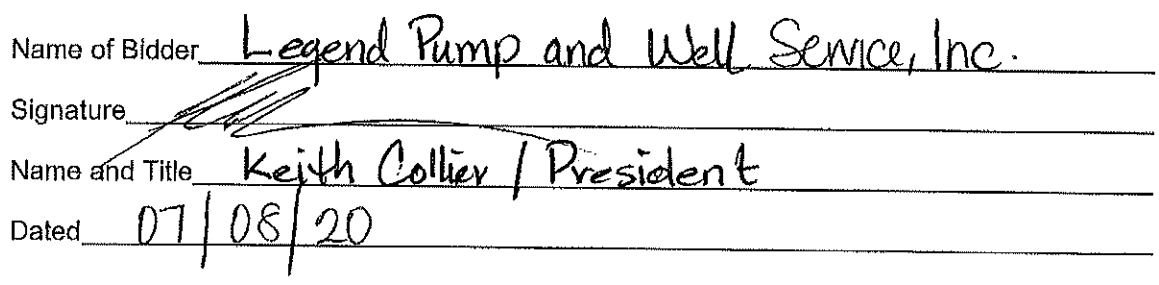 Name of Bidder Legend Pump and Well Service, Inc.
Signature
Name and Title Keith Collier / President
Dated 07/08/20